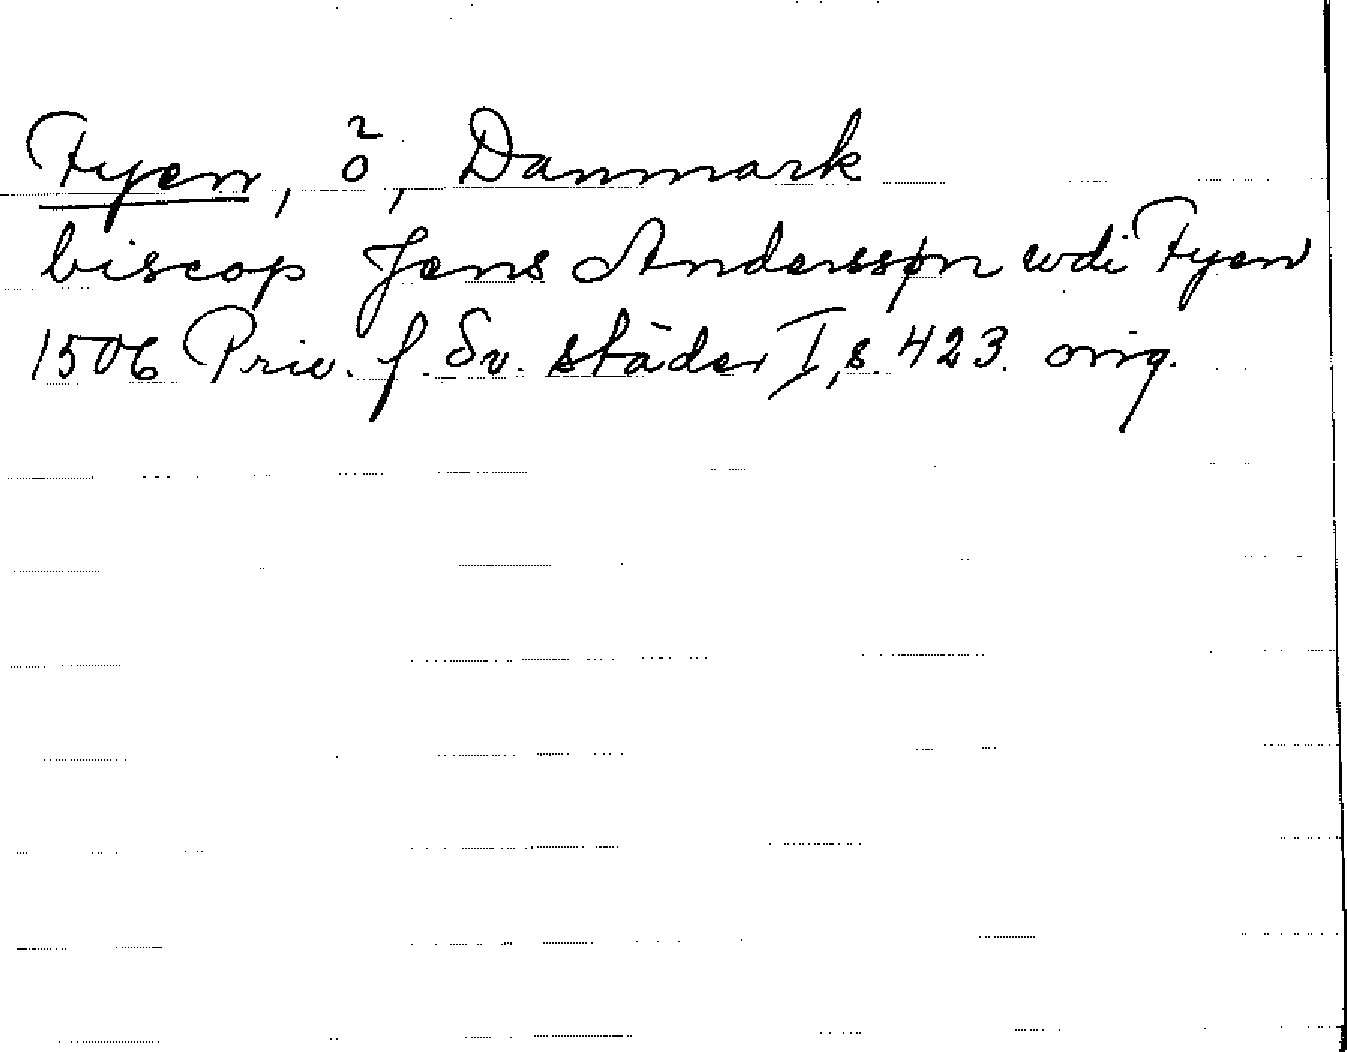 Fyen, ö, Danmark
biscop Jens Anderssøn wdi Fyen
1506 Priv. f. Sv. städer I, s. 423. orig.